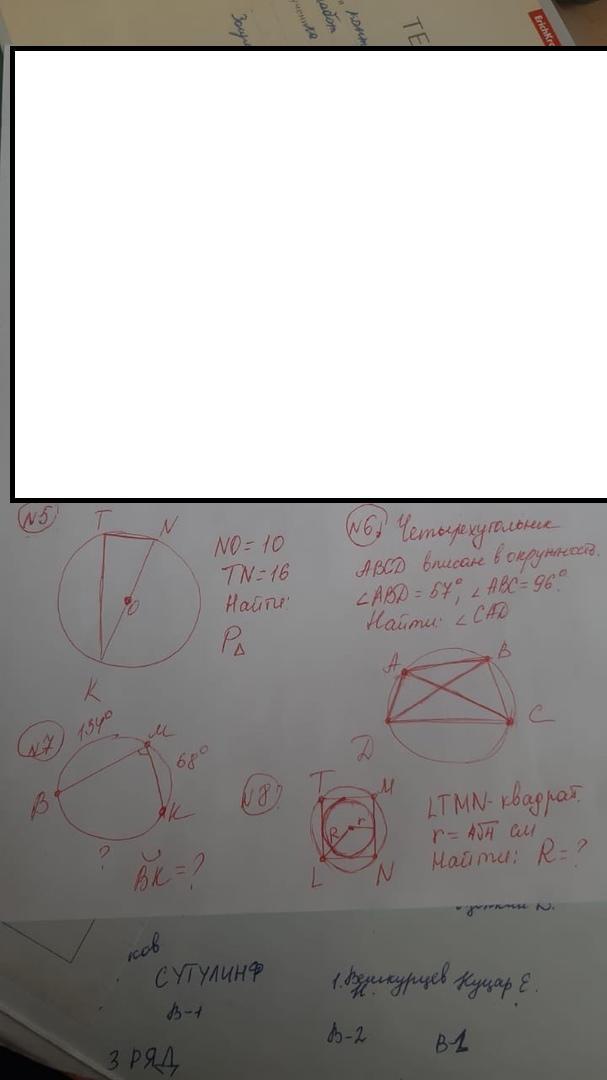 ТЕ
ErichKra
№5
T
N
O
K
NO = 10
TN = 16
Найти:
P△
№6.
Четырехугольник
ABCD вписан в окружность.
∠ABD = 57°, ∠ABC = 96°.
Найти: ∠CAD
A
B
C
D
№7
134°
M
68°
B
K
?
BK = ?
№8.
T
M
R
r
L
N
LTMN - квадрат.
см
Найти: R = ?
ков
СУТУЛИНФ
В-1
3 РЯД
1. Вешкурцев
Куцар Е.
В-2
В-1